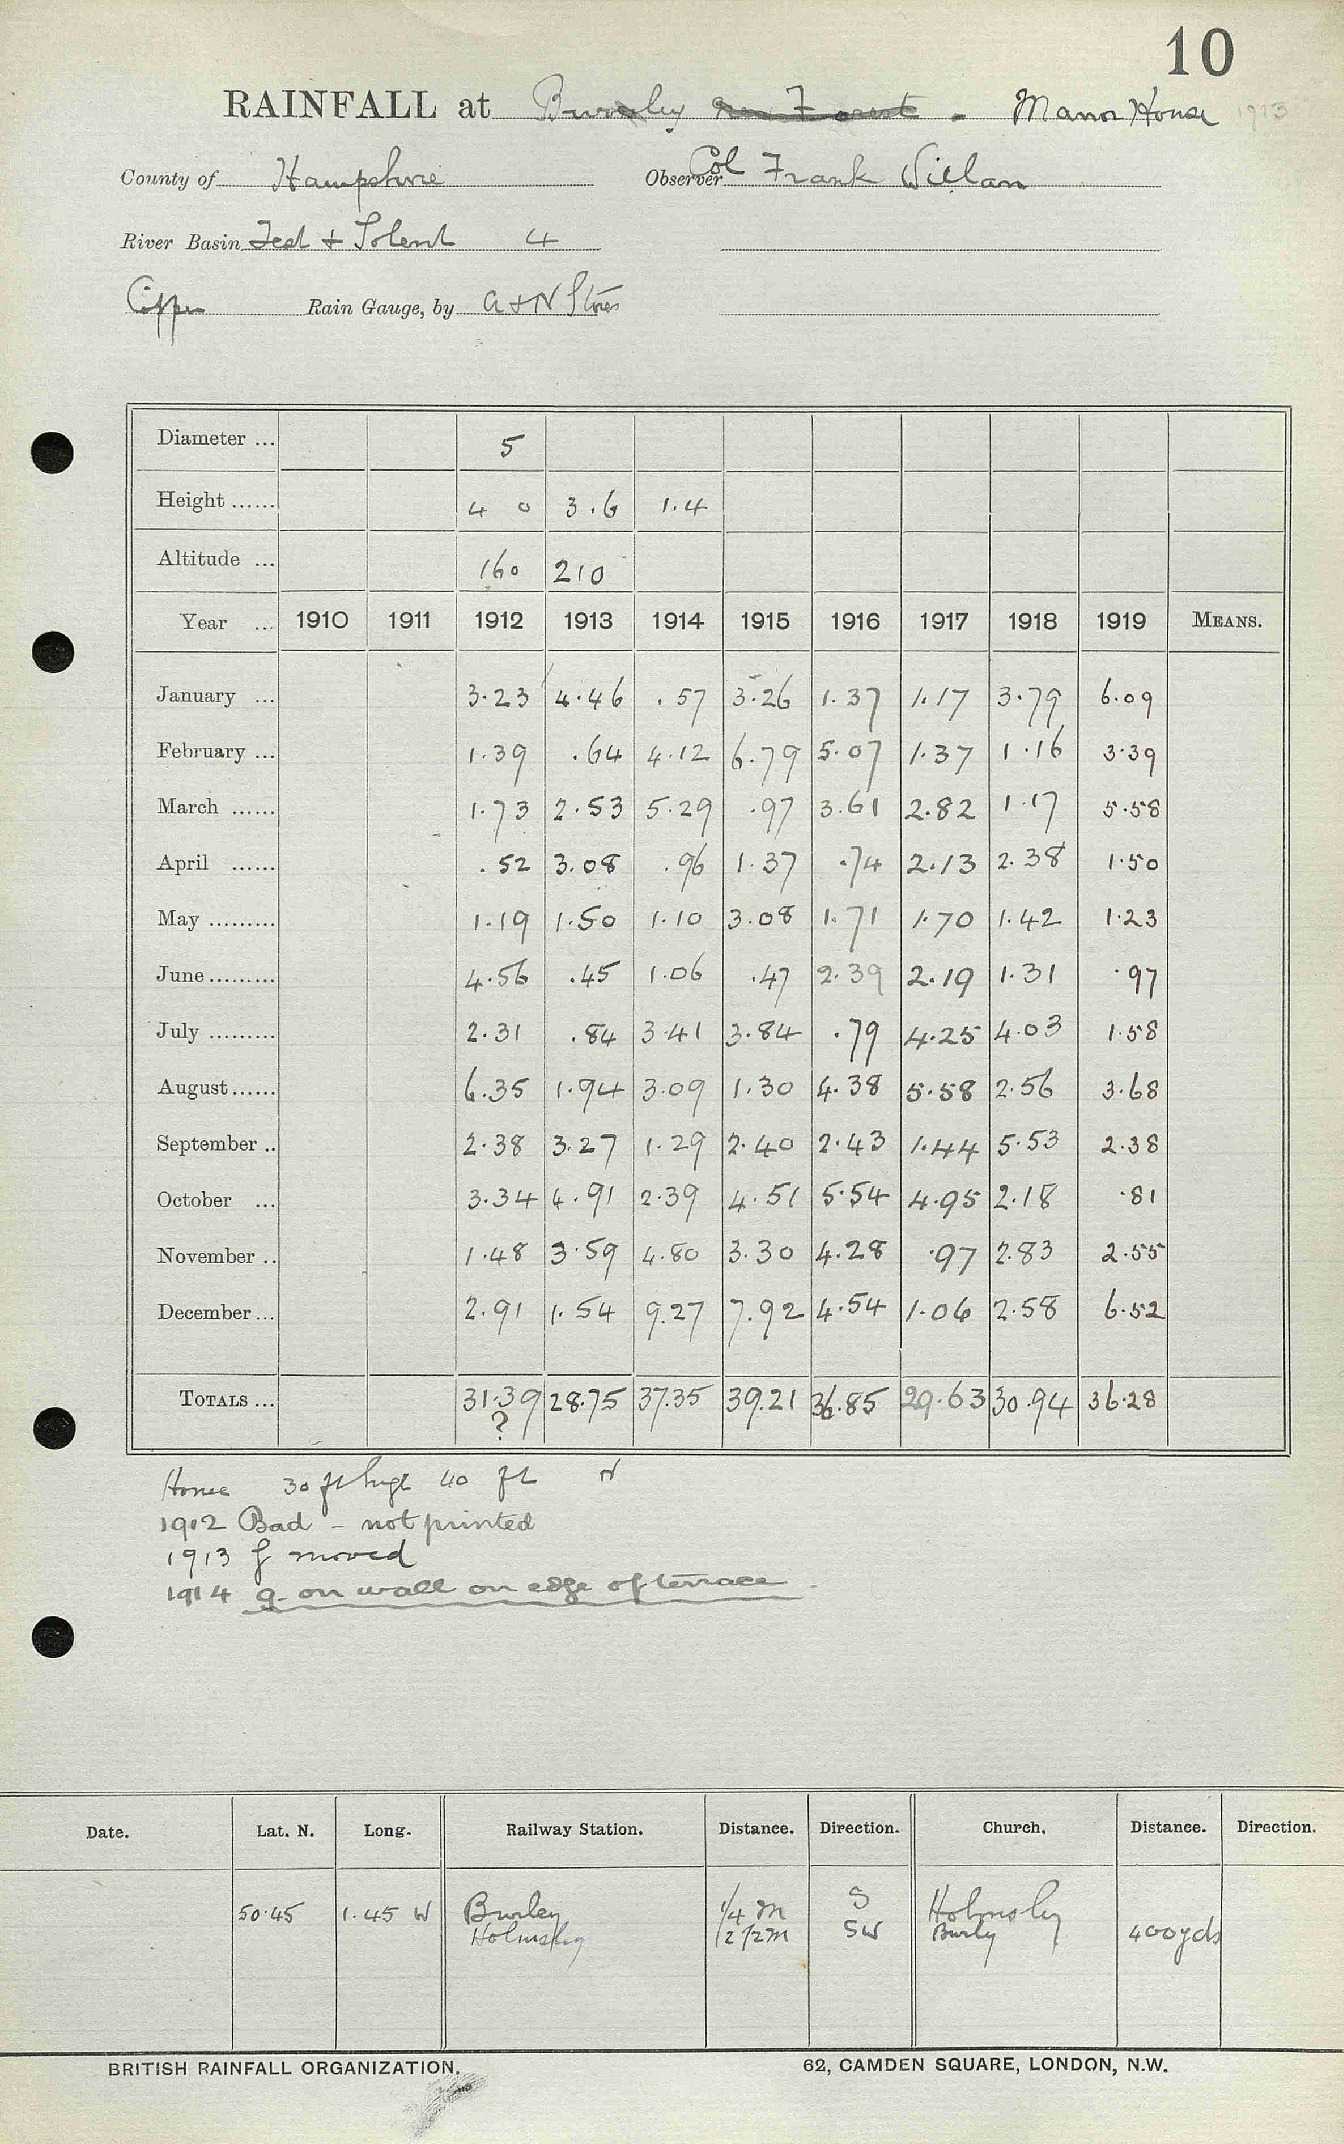 10
RAINFALL at Burley New Forest - Manor House 1913
County of Hampshire Observer Col Frank Willan
River Basin Test + Solent 4
Copper Rain Gauge, by A + N Stores
Diameter ... 5
Height ...... 4 0 3.6 1.4
Altitude ... 160 210
Year ... 1910 1911 1912 1913 1914 1915 1916 1917 1918 1919 MEANS.
January ... 3.23 4.46 .57 3.26 1.37 1.17 3.79 6.09
February ... 1.39 .64 4.12 6.79 5.07 1.37 1.16 3.39
March ...... 1.73 2.53 5.29 .97 3.61 2.82 1.17 5.58
April ...... .52 3.08 .96 1.37 .74 2.13 2.38 1.50
May ......... 1.19 1.50 1.10 3.08 1.71 1.70 1.42 1.23
June ......... 4.56 .45 1.06 .47 2.39 2.19 1.31 .97
July ......... 2.31 .84 3.41 3.84 .79 4.25 4.03 1.58
August ...... 6.35 1.94 3.09 1.30 4.38 5.58 2.56 3.68
September .. 2.38 3.27 1.29 2.40 2.43 1.44 5.53 2.38
October ... 3.34 4.91 2.39 4.51 5.54 4.95 2.18 .81
November .. 1.48 3.59 4.80 3.30 4.28 .97 2.83 2.55
December ... 2.91 1.54 9.27 7.92 4.54 1.06 2.58 6.52
TOTALS ... 31.39 28.75 37.35 39.21 36.85 29.63 30.94 36.28
?
House 30 ft high 40 ft N
1912 Bad - not printed
1913 g moved
1914 g. on wall on edge of terrace.
Date. Lat. N. Long. Railway Station. Distance. Direction. Church. Distance. Direction.
50.45 1.45 W Burley 1/4 m S Holmsley
Holmsley 2 1/2 m SW Burly 400 yds
BRITISH RAINFALL ORGANIZATION. 62, CAMDEN SQUARE, LONDON, N.W.